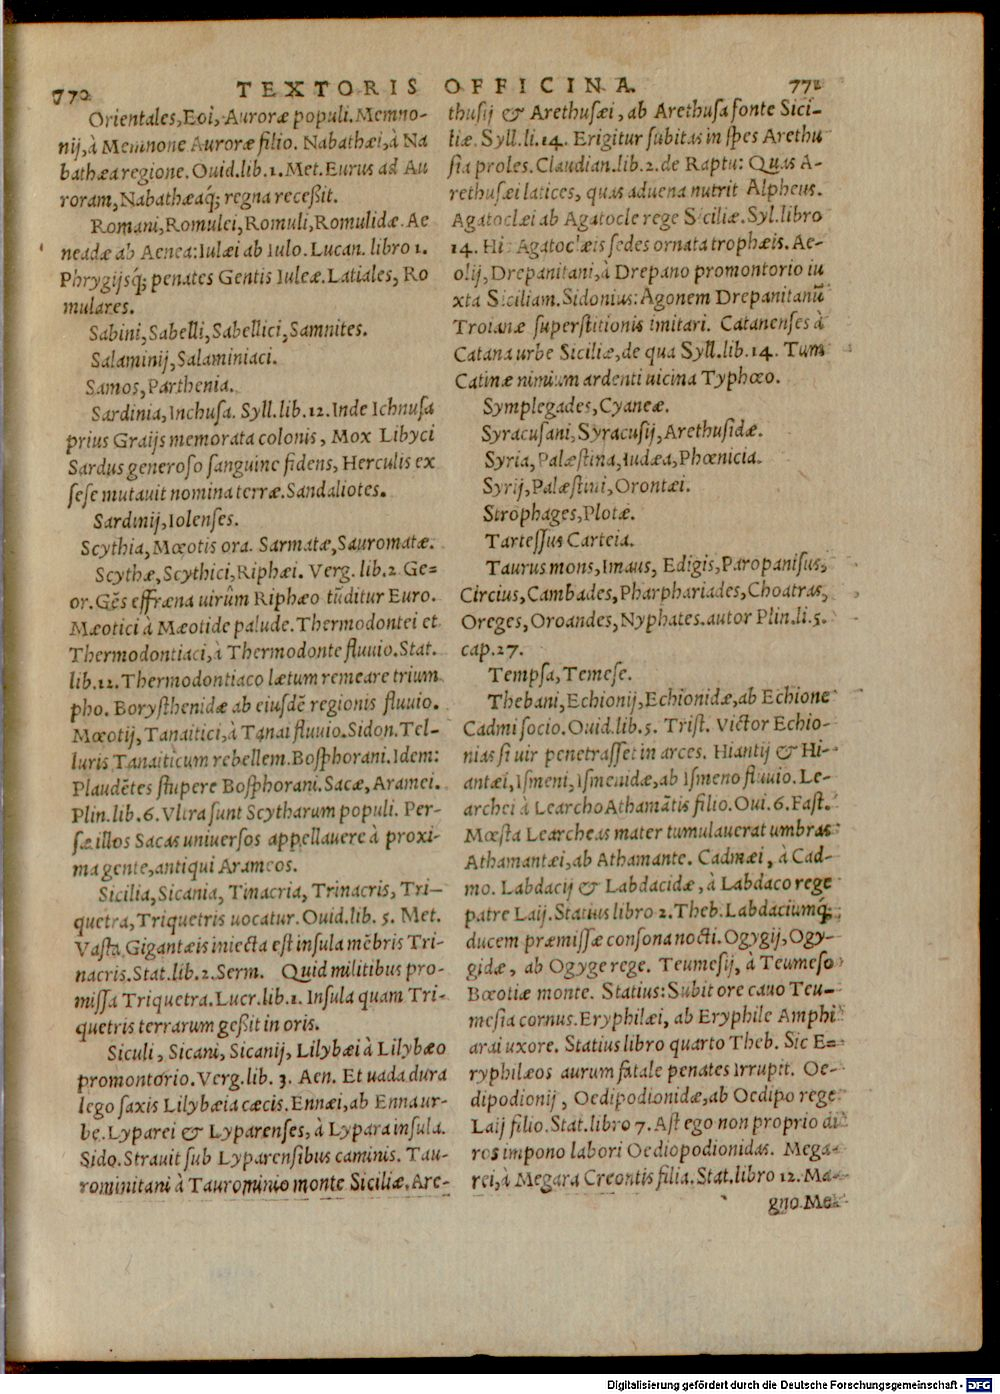 770 TEXTORIS OFFICINA. 771
Orientales, Eoi, Auroræ populi. Memno-
nij, à Memnone Auroræ filio. Nabathæi, à Na
bathæa regione. Ouid. lib. 1. Met. Eurus ad Au
roram, Nabathæaq́; regna receßit.
Romani, Romulei, Romuli, Romulidæ. Ae
neadæ ab Aenea: Iulæi ab Iulo. Lucan. libro 1.
Phrygijsq́; penates Gentis Iuleæ. Latiales, Ro
mulares.
Sabini, Sabelli, Sabellici, Samnites.
Salaminij, Salaminiaci.
Samos, Parthenia.
Sardinia, Inchusa. Syll. lib. 12. Inde Ichnusa
prius Graijs memorata colonis, Mox Libyci
Sardus generoso sanguine fidens, Herculis ex
sese mutauit nomina terræ. Sandaliotes.
Sardinij, Iolenses.
Scythia, Mœotis ora. Sarmatæ, Sauromatæ.
Scythæ, Scythici, Riphæi. Verg. lib. 2. Ge=
or. Gēs effræna uirûm Riphæo tūditur Euro.
Mæotici à Mæotide palude. Thermodontei et
Thermodontiaci, à Thermodonte fluuio. Stat.
lib. 12. Thermodontiaco lætum remeare trium
pho. Borysthenidæ ab eiusdē regionis fluuio.
Mœotij, Tanaitici, à Tanai fluuio. Sidon. Tel-
luris Tanaiticum rebellem. Bosphorani. Idem:
Plaudētes stupere Bosphorani. Sacæ, Aramei.
Plin. lib. 6. Vltra sunt Scytharum populi. Per-
sæ illos Sacas uniuersos appellauere à proxi-
ma gente, antiqui Arameos.
Sicilia, Sicania, Tinacria, Trinacris, Tri-
quetra, Triquetris uocatur. Ouid. lib. 5. Met.
Vasta Gigantæis iniecta est insula mēbris Tri-
nacris. Stat. lib. 2. Serm. Quid militibus pro-
missa Triquetra. Lucr. lib. 1. Insula quam Tri-
quetris terrarum geßit in oris.
Siculi, Sicani, Sicanij, Lilybæi à Lilybæo
promontorio. Verg. lib. 3. Aen. Et uada dura
lego saxis Lilybæia cæcis. Ennæi, ab Enna ur-
be. Lyparei & Lyparenses, à Lypara insula.
Sido. Strauit sub Lyparensibus caminis. Tau-
rominitani à Taurominio monte Siciliæ. Are-
thusij & Arethusæi, ab Arethusa fonte Sici-
liæ. Syll. li. 14. Erigitur subitas in spes Arethu
sia proles. Claudian. lib. 2. de Raptu: Quas A-
rethusæi latices, quas aduena nutrit Alpheus.
Agatoclæi ab Agatocle rege Siciliæ. Syl. libro
14. Hi Agatoclæis sedes ornata trophæis. Ae-
olij, Drepanitani, à Drepano promontorio iu
xta Siciliam. Sidonius: Agonem Drepanitanū
Troianæ superstitionis imitari. Catanenses à
Catana urbe Siciliæ, de qua Syll. lib. 14. Tum
Catinæ nimium ardenti uicina Typhœo.
Symplegades, Cyaneæ.
Syracusani, Syracusij, Arethusidæ.
Syria, Palæstina, Iudæa, Phœnicia.
Syrij, Palæstini, Orontæi.
Strophages, Plotæ.
Tartessus Carteia.
Taurus mons, Imaus, Edigis, Paropanisus,
Circius, Cambades, Pharphariades, Choatras,
Oreges, Oroandes, Nyphates. autor Plin. li. 5.
cap. 27.
Tempsa, Temese.
Thebani, Echionij, Echionidæ, ab Echione
Cadmi socio. Ouid. lib. 5. Trist. Victor Echio-
nias si uir penetrasset in arces. Hiantij & Hi-
antæi, Ismeni, Ismenidæ, ab Ismeno fluuio. Le-
archei à Learcho Athamātis filio. Oui. 6. Fast.
Mœsta Learcheas mater tumulauerat umbras
Athamantæi, ab Athamante. Cadmæi, à Cad-
mo. Labdacij & Labdacidæ, à Labdaco rege
patre Laij. Statius libro 2. Theb. Labdaciumq́;
ducem præmissæ consona nocti. Ogygij, Ogy-
gidæ, ab Ogyge rege. Teumesij, à Teumeso
Bœotiæ monte. Statius: Subit ore cauo Teu-
mesia cornus. Eryphilæi, ab Eryphile Amphi
arai uxore. Statius libro quarto Theb. Sic E=
ryphilæos aurum fatale penates Irrupit. Oe-
dipodionij, Oedipodionidæ, ab Oedipo rege
Laij filio. Stat. libro 7. Ast ego non proprio di
ros impono labori Oediopodionidas. Mega-
rei, à Megara Creontis filia. Stat. libro 12. Ma-
gno. Me-
Digitalisierung gefördert durch die Deutsche Forschungsgemeinschaft - DFG